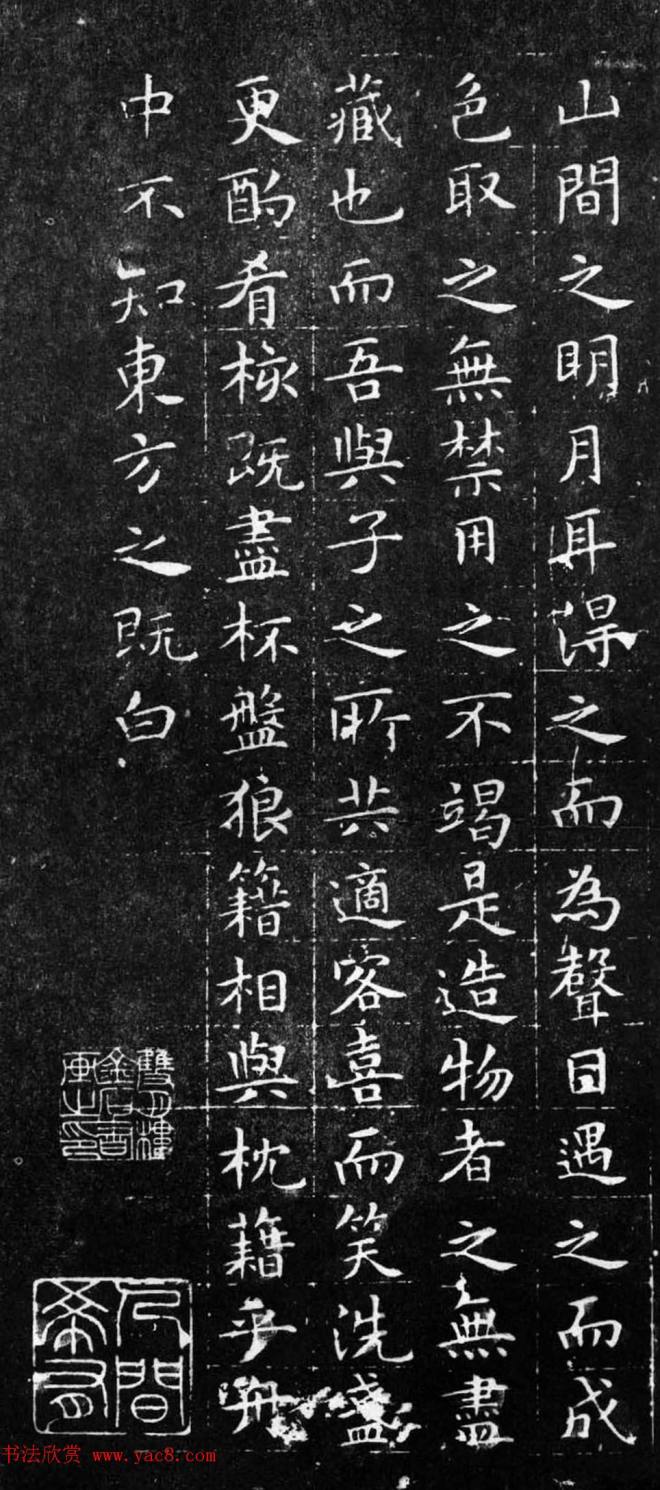 山間之明月耳得之而為聲目遇之而成
色取之無禁用之不竭是造物者之無盡
藏也而吾與子之所共適客喜而笑洗盞
更酌肴核既盡杯盤狼籍相與枕藉乎舟
中不知東方之既白
人間
希有
书法欣赏 www.yac8.com